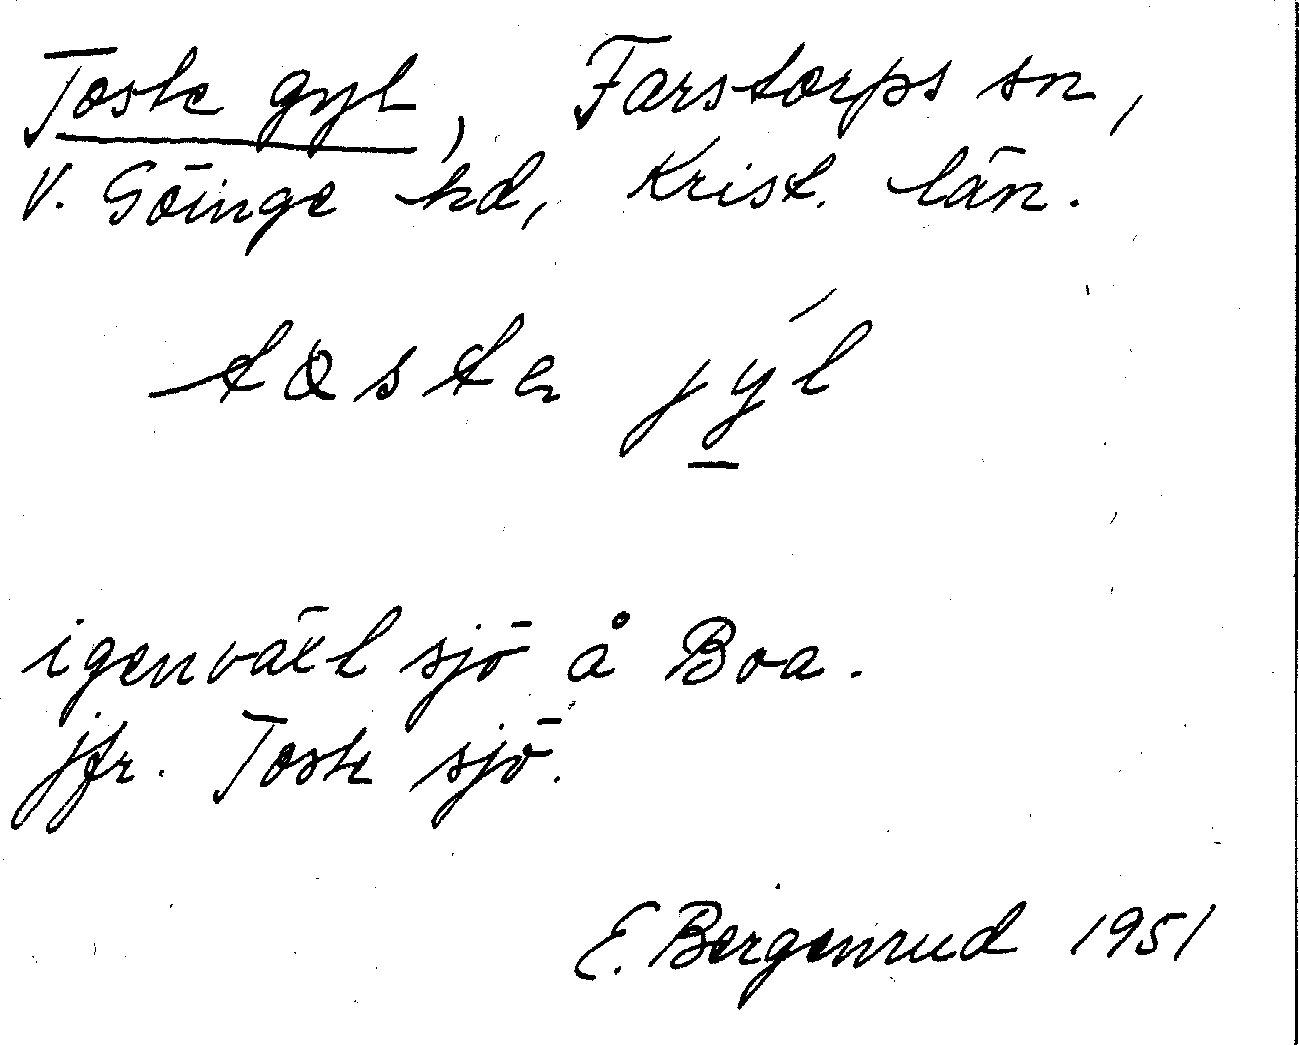 Toste gyl, Farstorps sn,
V. Göinge hd, Krist. län.
tɷstɐ jýl
igenväxt sjö å Boa.
jfr. Toste sjö.
E. Bergenrud 1951